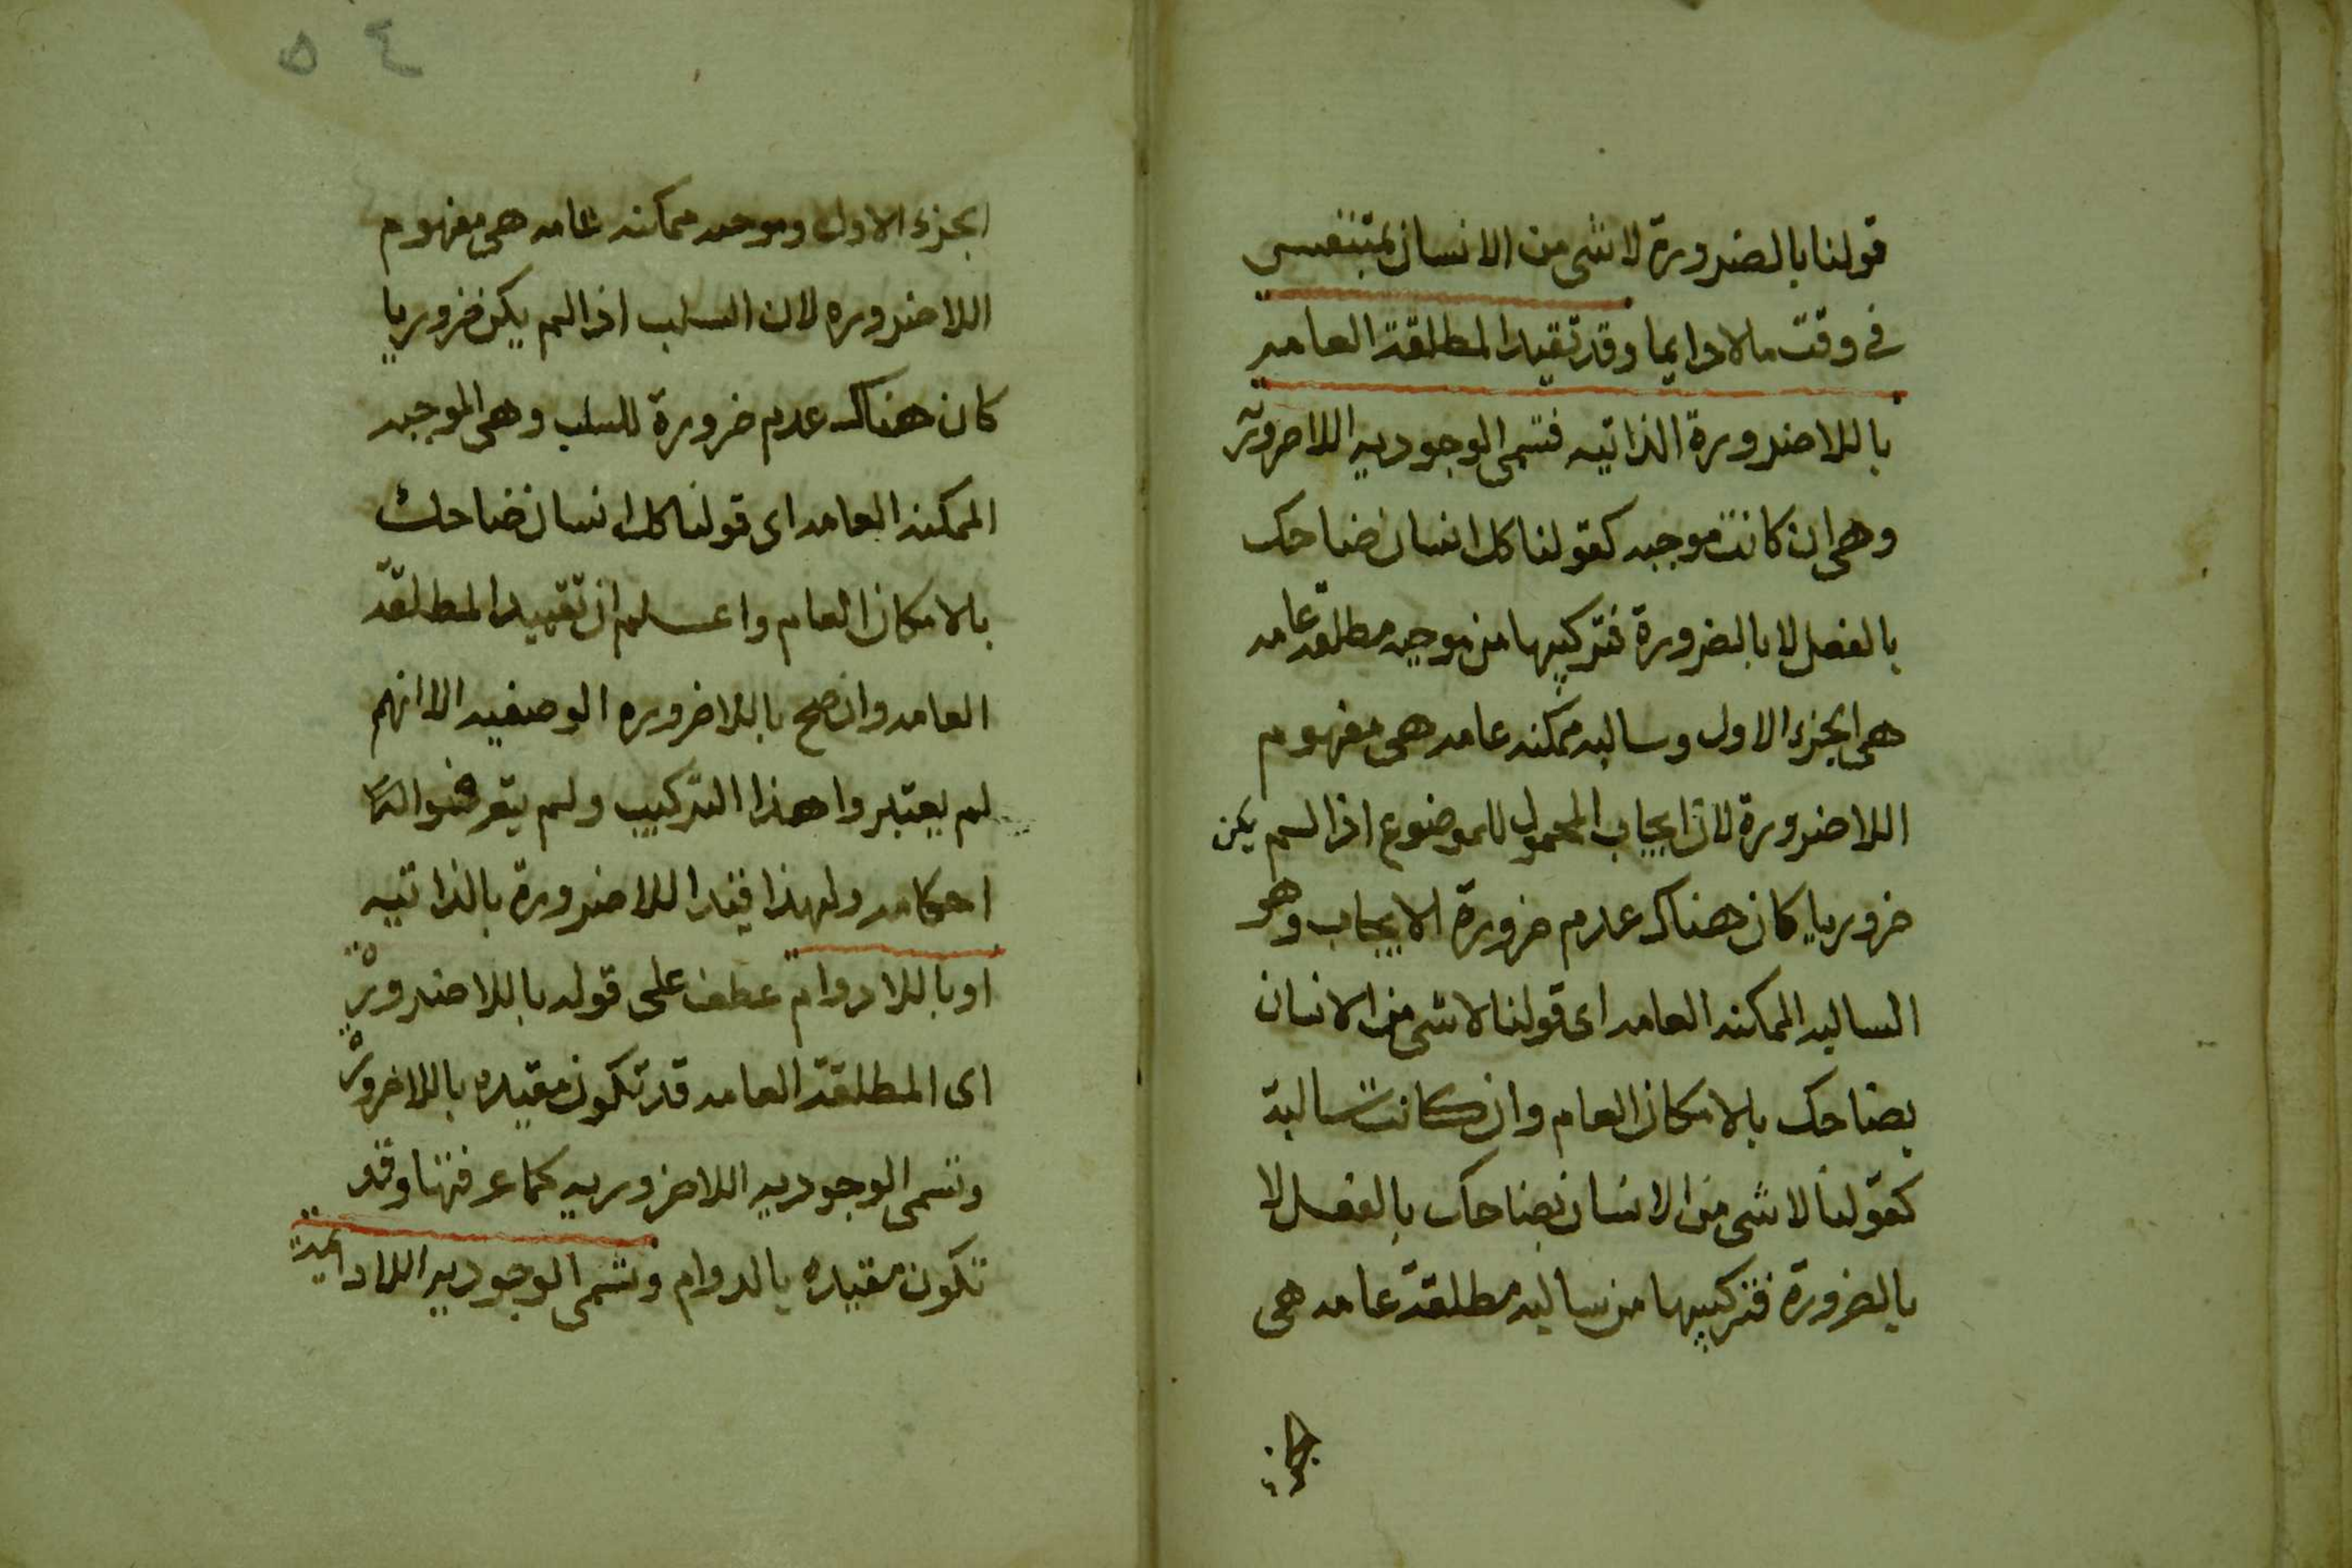 قولنا بالضرورة لا شى من الانسان بمتنفس
فى وقت ما لا دايما وقد تقيد المطلقة العامه
باللاضرورة الذاتيه فتسمى الوجوديه اللاضرورية
وهى ان كانت موجبه كقولنا كل انسان ضاحك
بالفعل لا بالضرورة فتركيبها من موجبه مطلقه عامه
هى الجزء الاول وسالبه ممكنه عامه هى مفهوم
اللاضرورة لان ايجاب المحمول للموضوع اذا لم يكن
ضروريا كان هناك عدم ضرورة الايجاب وهو
السالبه الممكنه العامه اى قولنا لا شى من الانسان
بضاحك بالامكان العام وان كانت سالبة
كقولنا لا شى من الانسان بضاحك بالفعل لا
بالضرورة فتركيبها من سالبه مطلقة عامه هى
٥٤
الجزء الاول وموجبه ممكنه عامه هى مفهوم
اللاضروره لان السلب اذا لم يكن ضروريا
كان هناك عدم ضرورة للسلب وهى الموجبه
الممكنه العامه اى قولنا كل انسان ضاحك
بالامكان العام واعلم ان تقييد المطلقة
العامه وان صح باللاضروره الوصفيه الا انهم
لم يعتبروا هذا التركيب ولم يتعرضوا
احكامه ولهذا قيد اللاضرورة بالذاتيه
او باللادوام عطف على قوله باللاضرورة
اى المطلقة العامه قد تكون مقيده باللاضرورة
وتسمى الوجوديه اللاضروريه كما عرفتها وقد
تكون مقيده بالدوام وتسمى الوجوديه اللادايمة